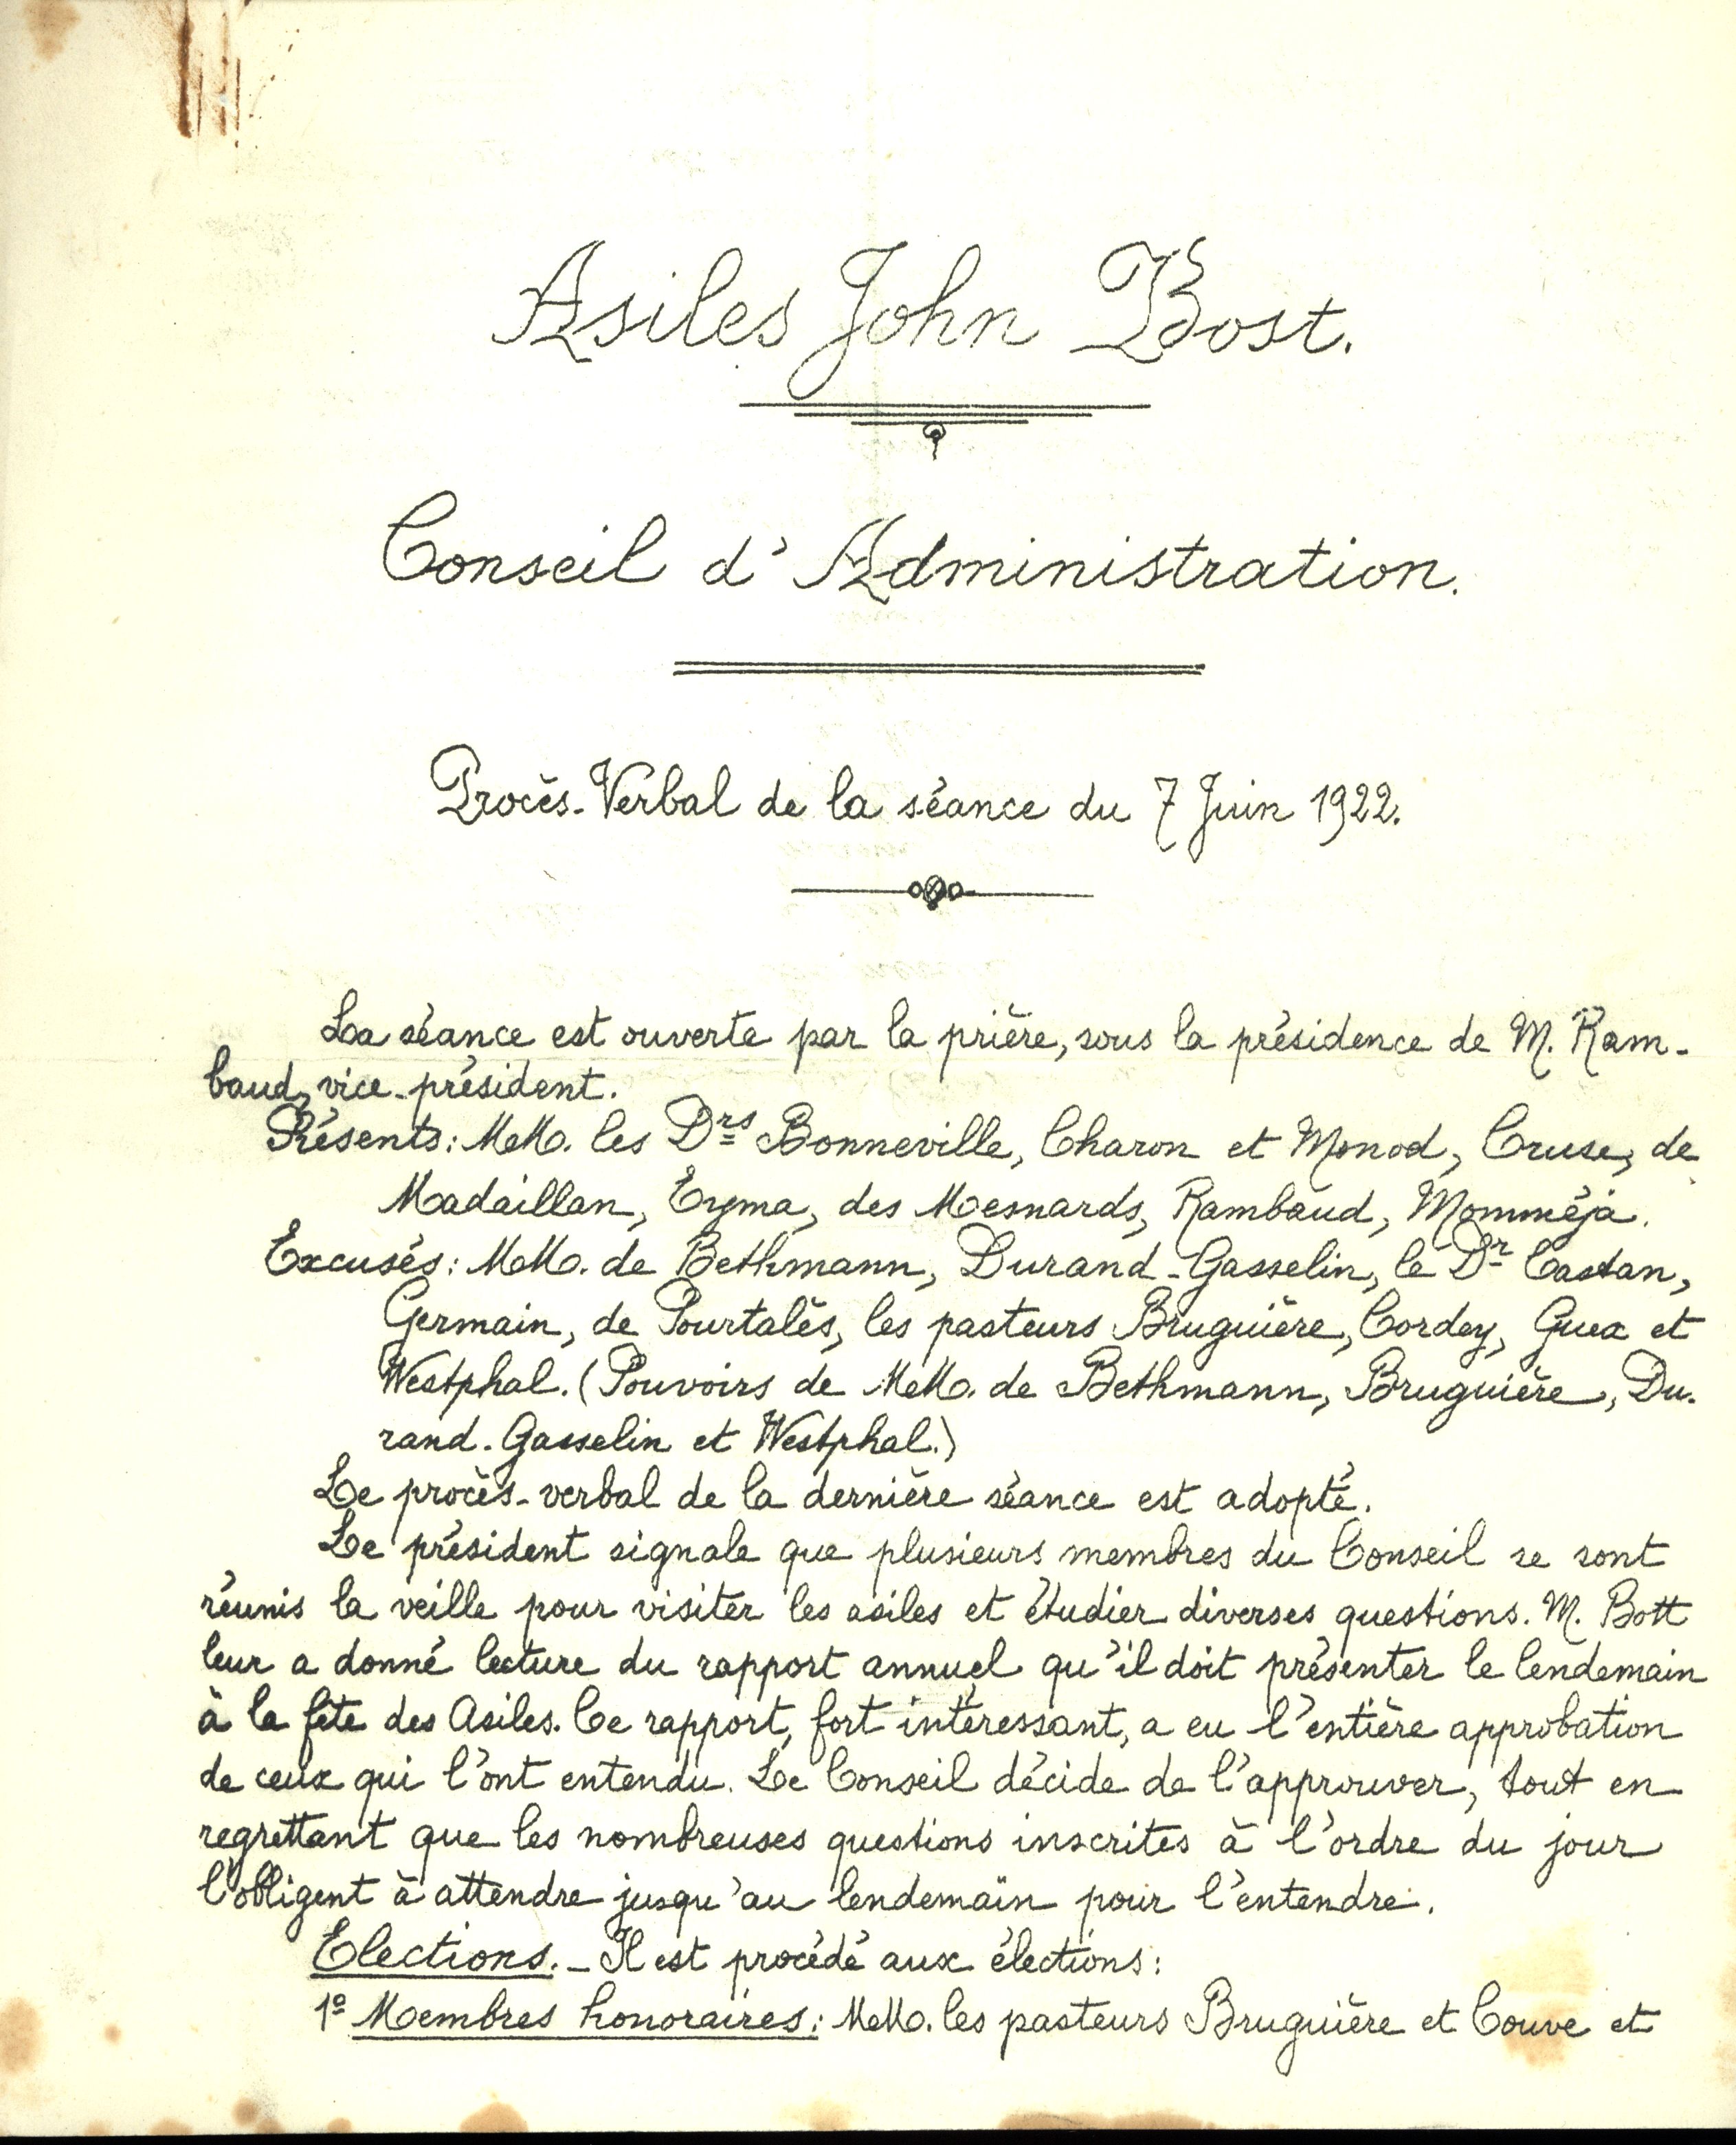 Asiles John Bost.
Conseil d'Administration.
Procès-Verbal de la séance du 7 Juin 1922.
La séance est ouverte par la prière, sous la présidence de M. Ram-
baud, vice-président.
Présents: MM. les Drs Bonneville, Charon et Monod, Cruse, de
Madaillan, Eyma, des Mesnards, Rambaud, Momméja.
Excusés: MM. de Bethmann, Durand-Gasselin, le Dr Castan,
Germain, de Pourtalès, les pasteurs Bruguière, Cordey, Guex et
Westphal. (Pouvoirs de MM. de Bethmann, Bruguière, Du-
rand-Gasselin et Westphal.)
Le procès-verbal de la dernière séance est adopté.
Le président signale que plusieurs membres du Conseil se sont
réunis la veille pour visiter les asiles et étudier diverses questions. M. Bott
leur a donné lecture du rapport annuel qu'il doit présenter le lendemain
à la fête des Asiles. Ce rapport, fort intéressant, a eu l'entière approbation
de ceux qui l'ont entendu. Le Conseil décide de l'approuver, tout en
regrettant que les nombreuses questions inscrites à l'ordre du jour
l'obligent à attendre jusqu'au lendemain pour l'entendre.
Elections. - Il est procédé aux élections:
1º Membres honoraires: MM. les pasteurs Bruguière et Couve et